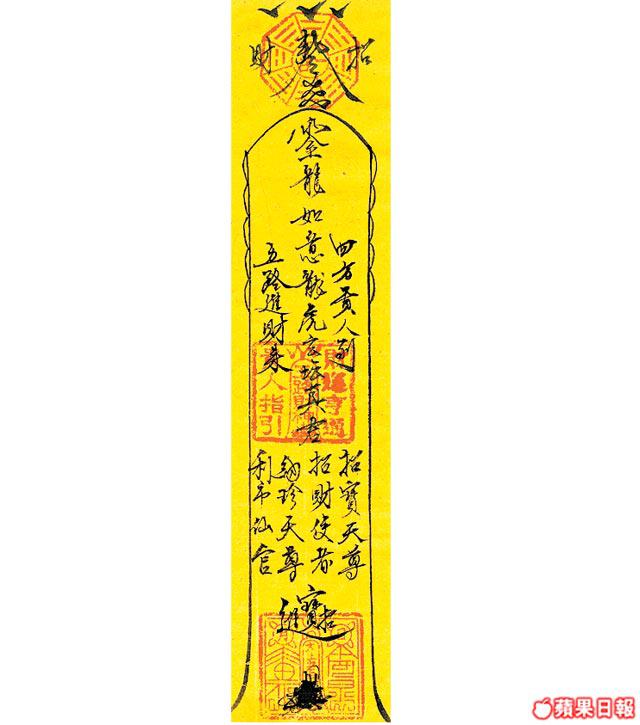 招財
四方貴人到
龍如意龍虎玄坛真君
五路進財來
財運亨通
路財神
貴人指引
招寶天尊
招財使者
納珍天尊
利市仙官
招財進寶
蘋果日報